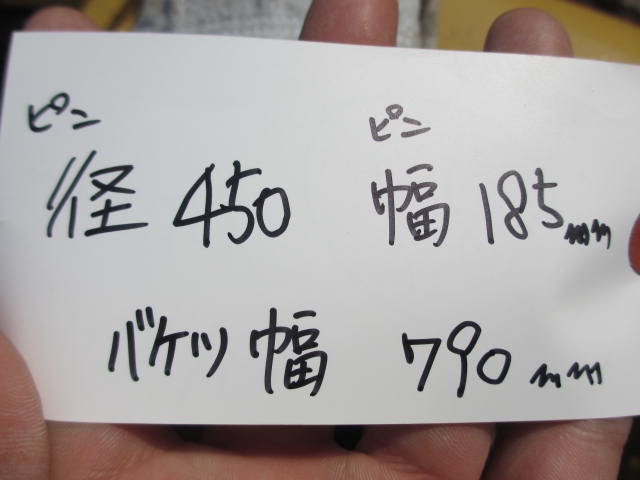 ピン ピン
径 450 幅 185mm
バケツ幅 790mm